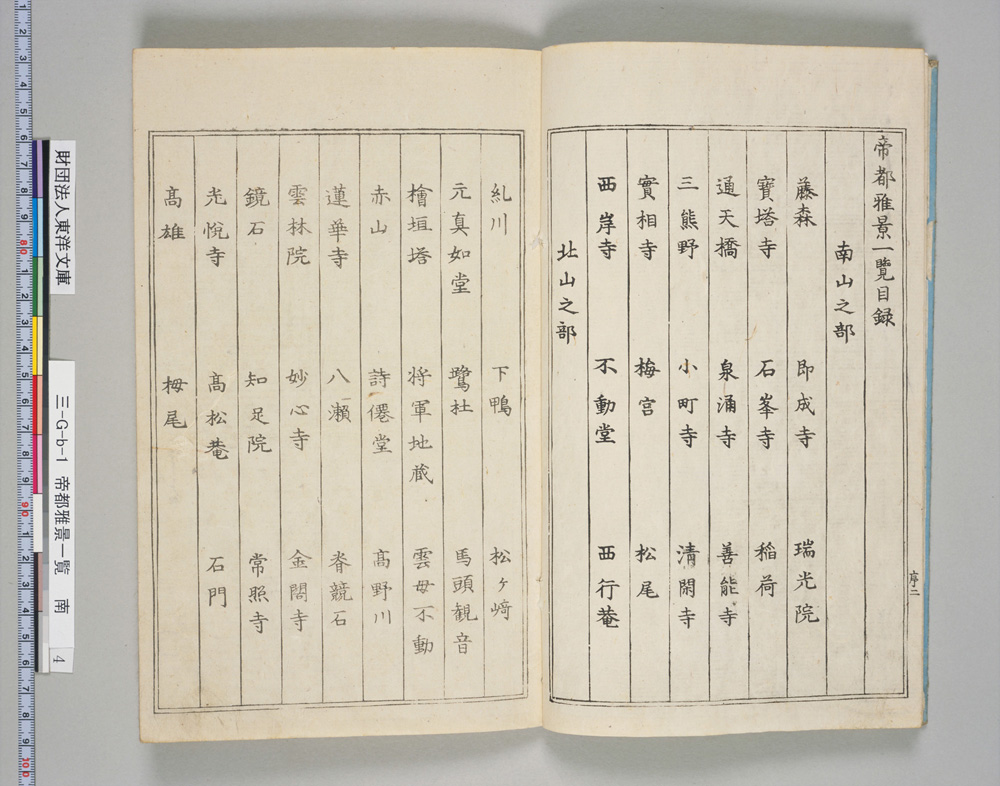 帝都雅景一覽目録
南山之部
藤森 即成寺 瑞光院
寳塔寺 石峯寺 稲荷
通天橋 泉涌寺 善能寺
三熊野 小町寺 清閑寺
實相寺 梅宮 松尾
西岸寺 不動堂 西行菴
北山之部
序二
糺川 下鴨 松ヶ﨑
元真如堂 鷺杜 馬頭観音
檜垣塔 将軍地蔵 雲母不動
赤山 詩僊堂 髙野川
蓮華寺 八瀬 脊競石
雲林院 妙心寺 金閣寺
鏡石 知足院 常照寺
光悦寺 髙松菴 石門
髙雄 栂尾
財団法人東洋文庫
三-G-b-1 帝都雅景一覧 南 4